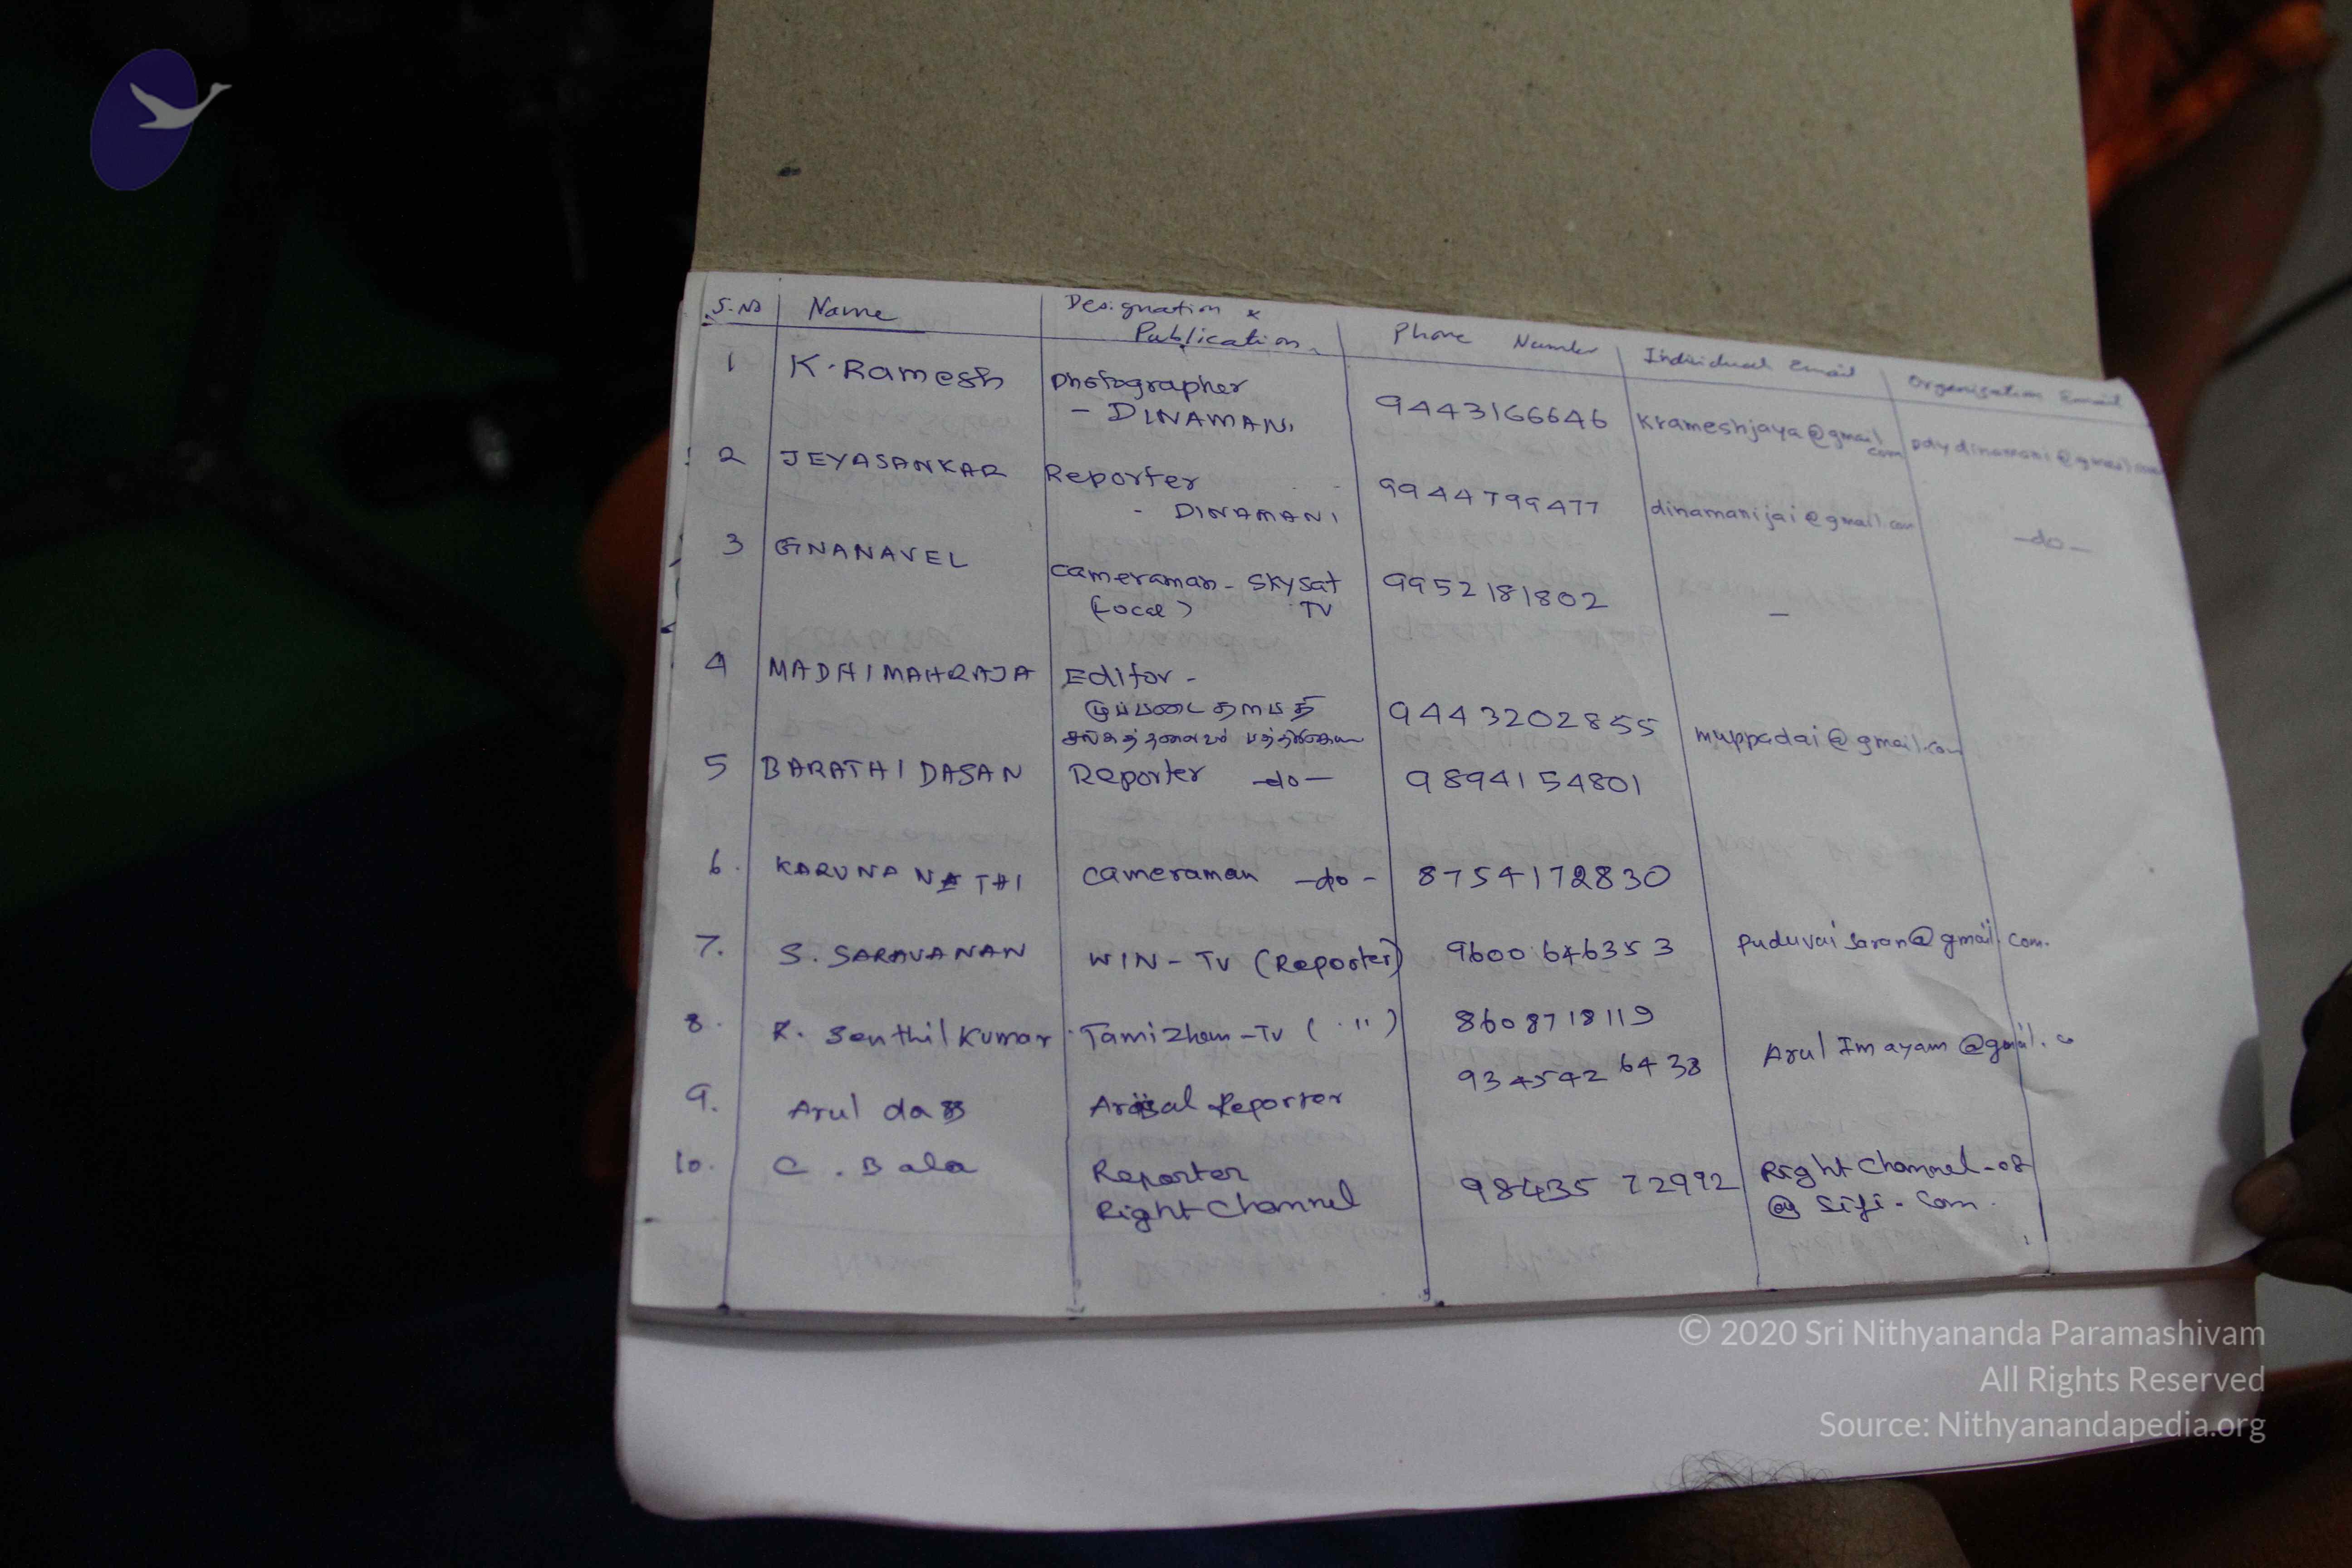 S.No Name Designation & Publication Phone Number Individual Email Organisation Email
1 K. Ramesh Photographer - DINAMANI 9443166646 krameshjaya@gmail.com pdydinamani@gmail.com
2 JEYASANKAR Reporter - DINAMANI 9944799477 dinamanijai@gmail.com -do-
3 GNANAVEL Cameraman - SkySat TV (Local) 9952181802 -
4 MADHIMAHRAJA Editor - முப்படை தளபதி 9443202855 muppadai@gmail.com
5 BARATHIDASAN Reporter -do- 9894154801
6. KARUNANATHI Cameraman -do- 8754172830
7. S. SARAVANAN WIN-TV (Reporter) 9600646353 puduvaisaran@gmail.com.
8. R. Senthil Kumar Tamizhem-TV ( " ) 8608718119
9. Arul dass Reporter 9345426438 Arul Imayam@gmail.
10. C. Bala Reporter Right Channel 98435 72992 Right Channel-08 @ Sifi.Com.
© 2020 Sri Nithyananda Paramashivam
All Rights Reserved
Source: Nithyanandapedia.org